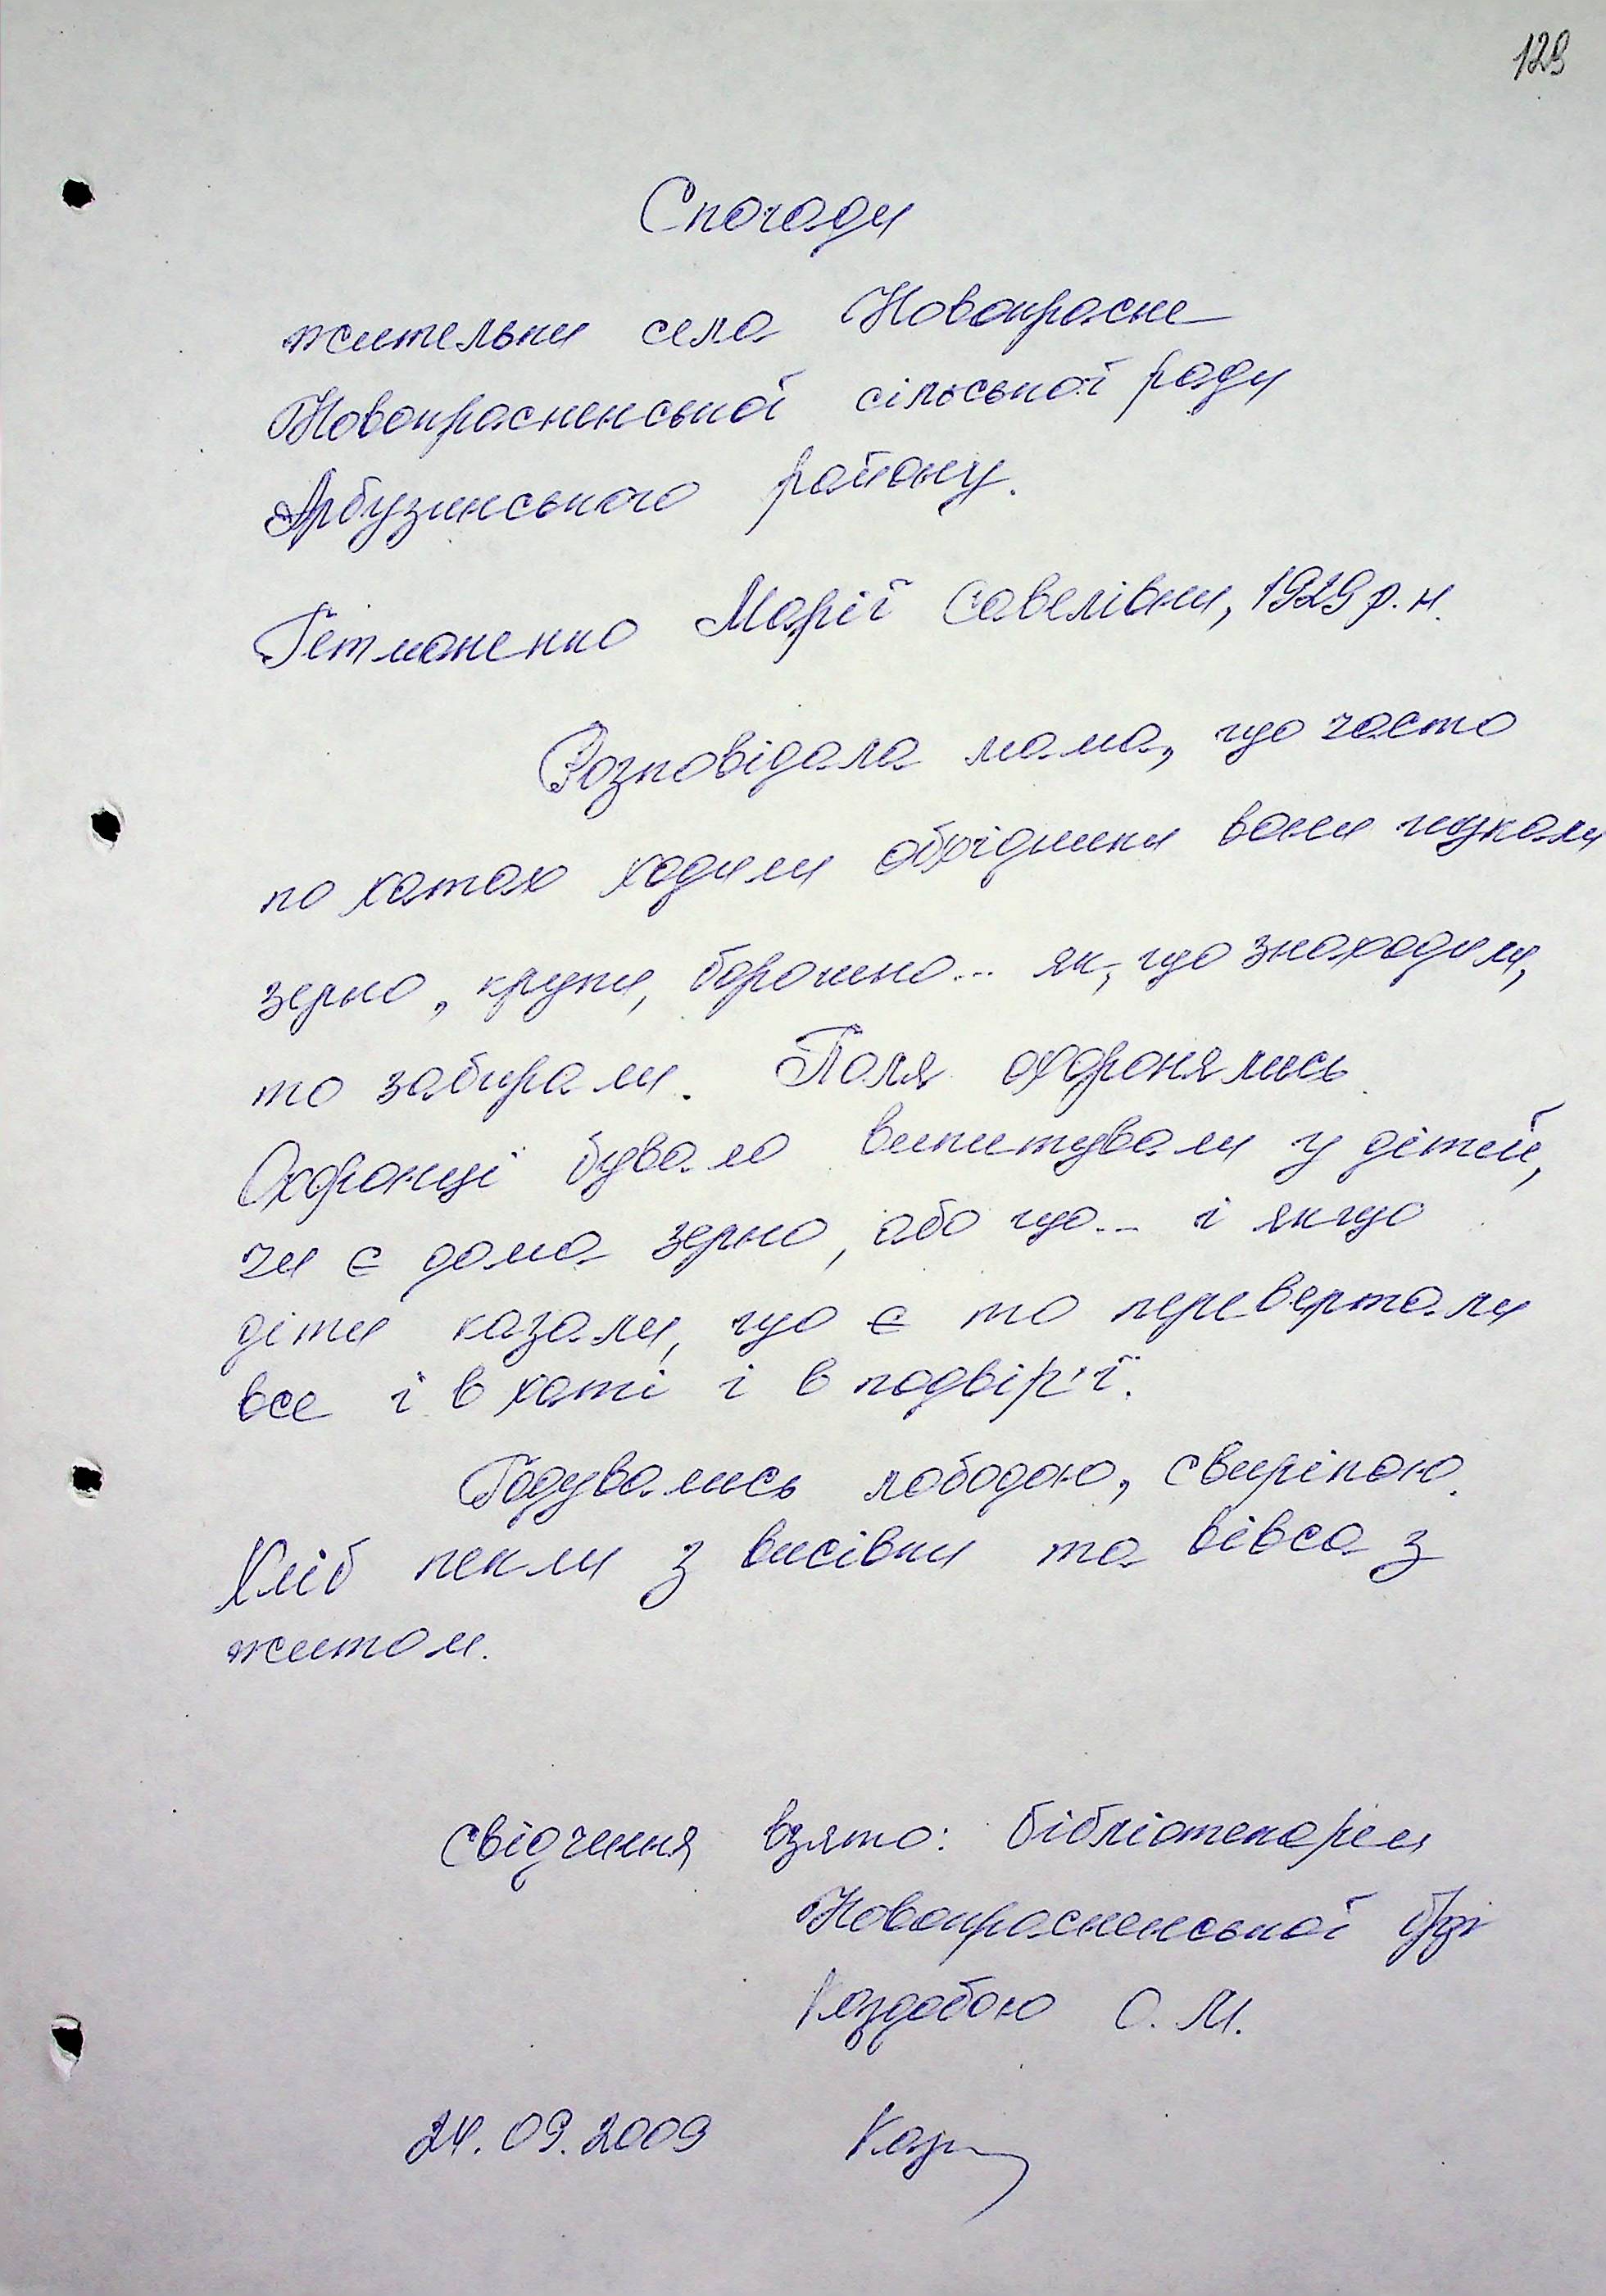 129
Спогади
жительки села Новокрасне
Новокрасненської сільської ради
Арбузинського району.
Гетманенко Марії Савелівни, 1929 р.н.
Розповідала мама, що часто
по хатах ходили обхідники вони шукали
зерно, крупи, борошно... як, що знаходили,
то забирали. Поля охоронялись
Охоронці бувало випитували у дітей,
чи є дома зерно, або що... і якщо
діти казали, що є то перевертали
все і в хаті і в подвір'ї.
Годувались лободою, свиріпою.
Хліб пекли з висівки та вівса з
житом.
свідчення взято: бібліотекарем
Новокрасненської
С. М.
24.09.2009